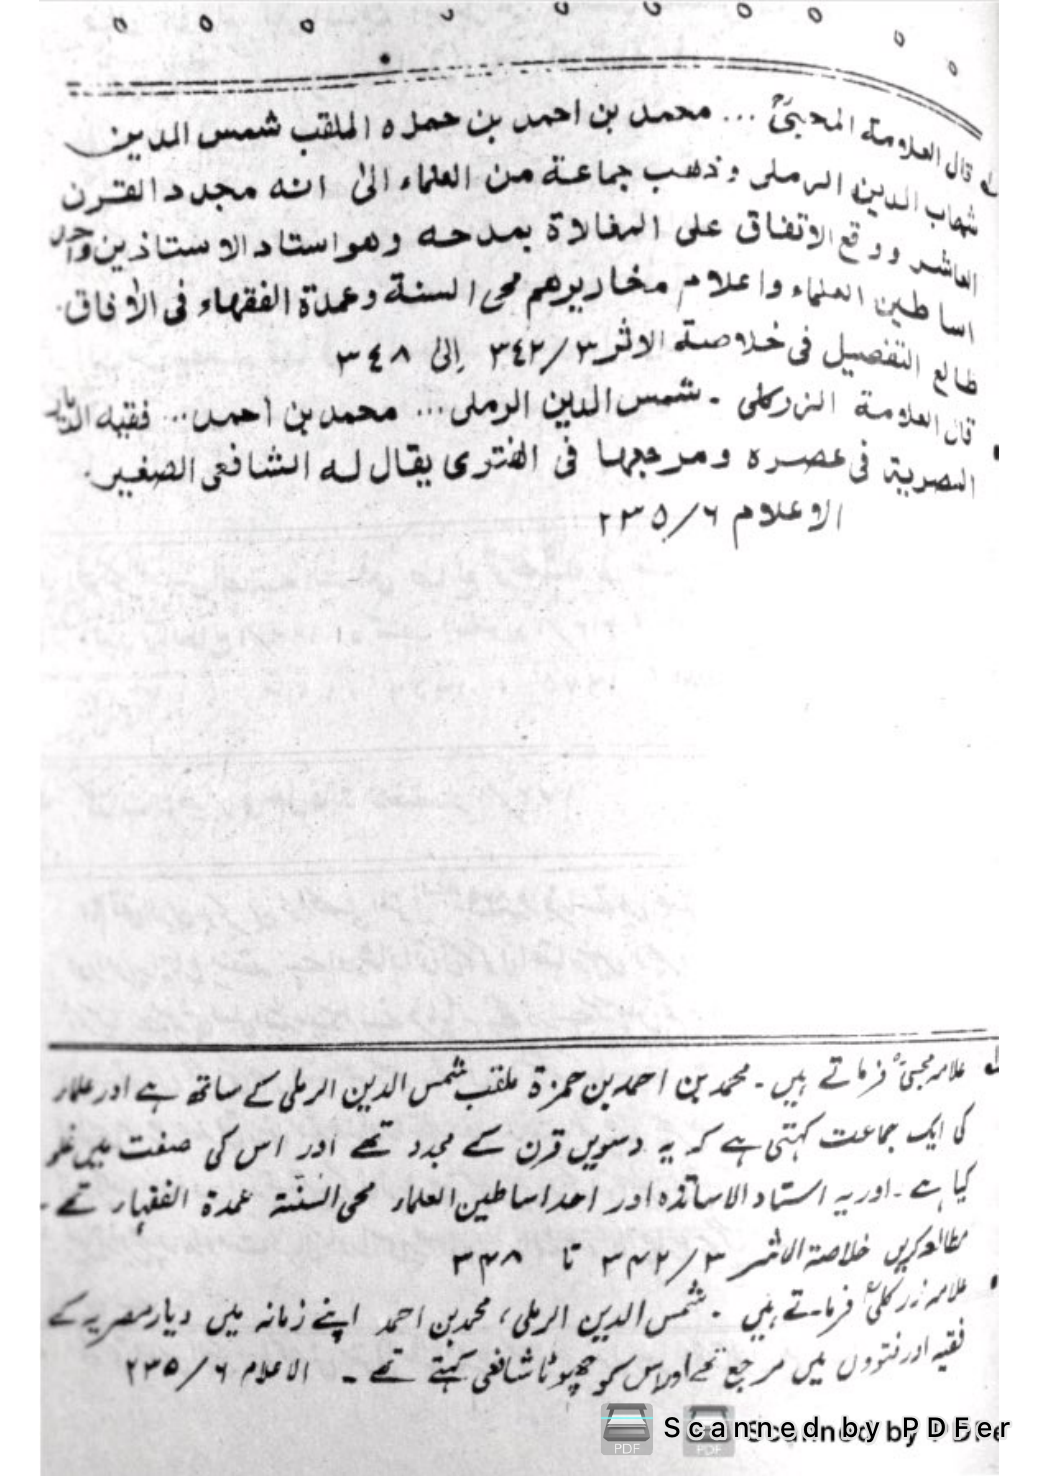 قال العلامة المحبیؒ ... محمد بن احمد بن حمزه الملقب شمس الدین
شهاب الدین الرملی وذهب جماعة من العلماء الیٰ انه مجدد القرن
العاشر ووقع الاتفاق علی المغالاة بمدحه وهو استاد الاستاذین واحد
اساطین العلماء واعلام مخاریرهم محی السنة وعمدة الفقهاء فی الآفاق.
طالع التفصیل فی خلاصة الاثر ٣/٣٤٢ إلیٰ ٣٤٨
قال العلامة الزرکلی ۔ شمس الدین الرملی... محمد بن احمد... فقیه الدیار
المصریة فی عصره ومرجعها فی الفتوی یقال له الشافعی الصغیر۔
الاعلام ٦/٢٣٥
علامہ محبیؒ فرماتے ہیں ۔ محمد بن احمد بن حمزۃ ملقب شمس الدین الرملی کے ساتھ ہے اور علماء
کی ایک جماعت کہتی ہے کہ یہ دسویں قرن کے مجدد تھے اور اس کی صفت میں غلو
کیا ہے ۔ اور یہ استاد الاساتذہ اور احد اساطین العلماء محی السنّتہ عمدۃ الفقہاء تھے ۔
مطالعہ کریں خلاصۃ الاثر ۳/۳۴۲ تا ۳۴۸
علامہ زرکلیؒ فرماتے ہیں ۔ شمس الدین الرملی، محمد بن احمد اپنے زمانہ میں دیار مصریہ کے
فقیہ اور فتووں میں مرجع تھے اور اس کو چھوٹا شافعی کہتے تھے ۔ الاعلام ۶/۲۳۵
Scanned by PDFer
Scanned by PDFe